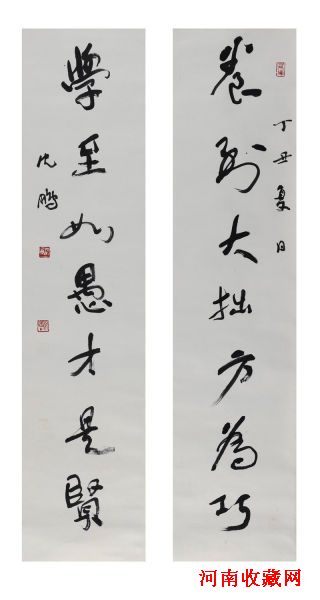 養到大拙方為巧
丁丑夏日
學至如愚才是賢
沈鵬
河南收藏网